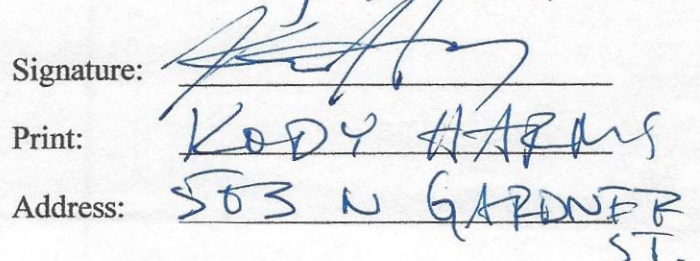 Signature:
Print: KODY HARMS
Address: 503 N GARDNER
ST.